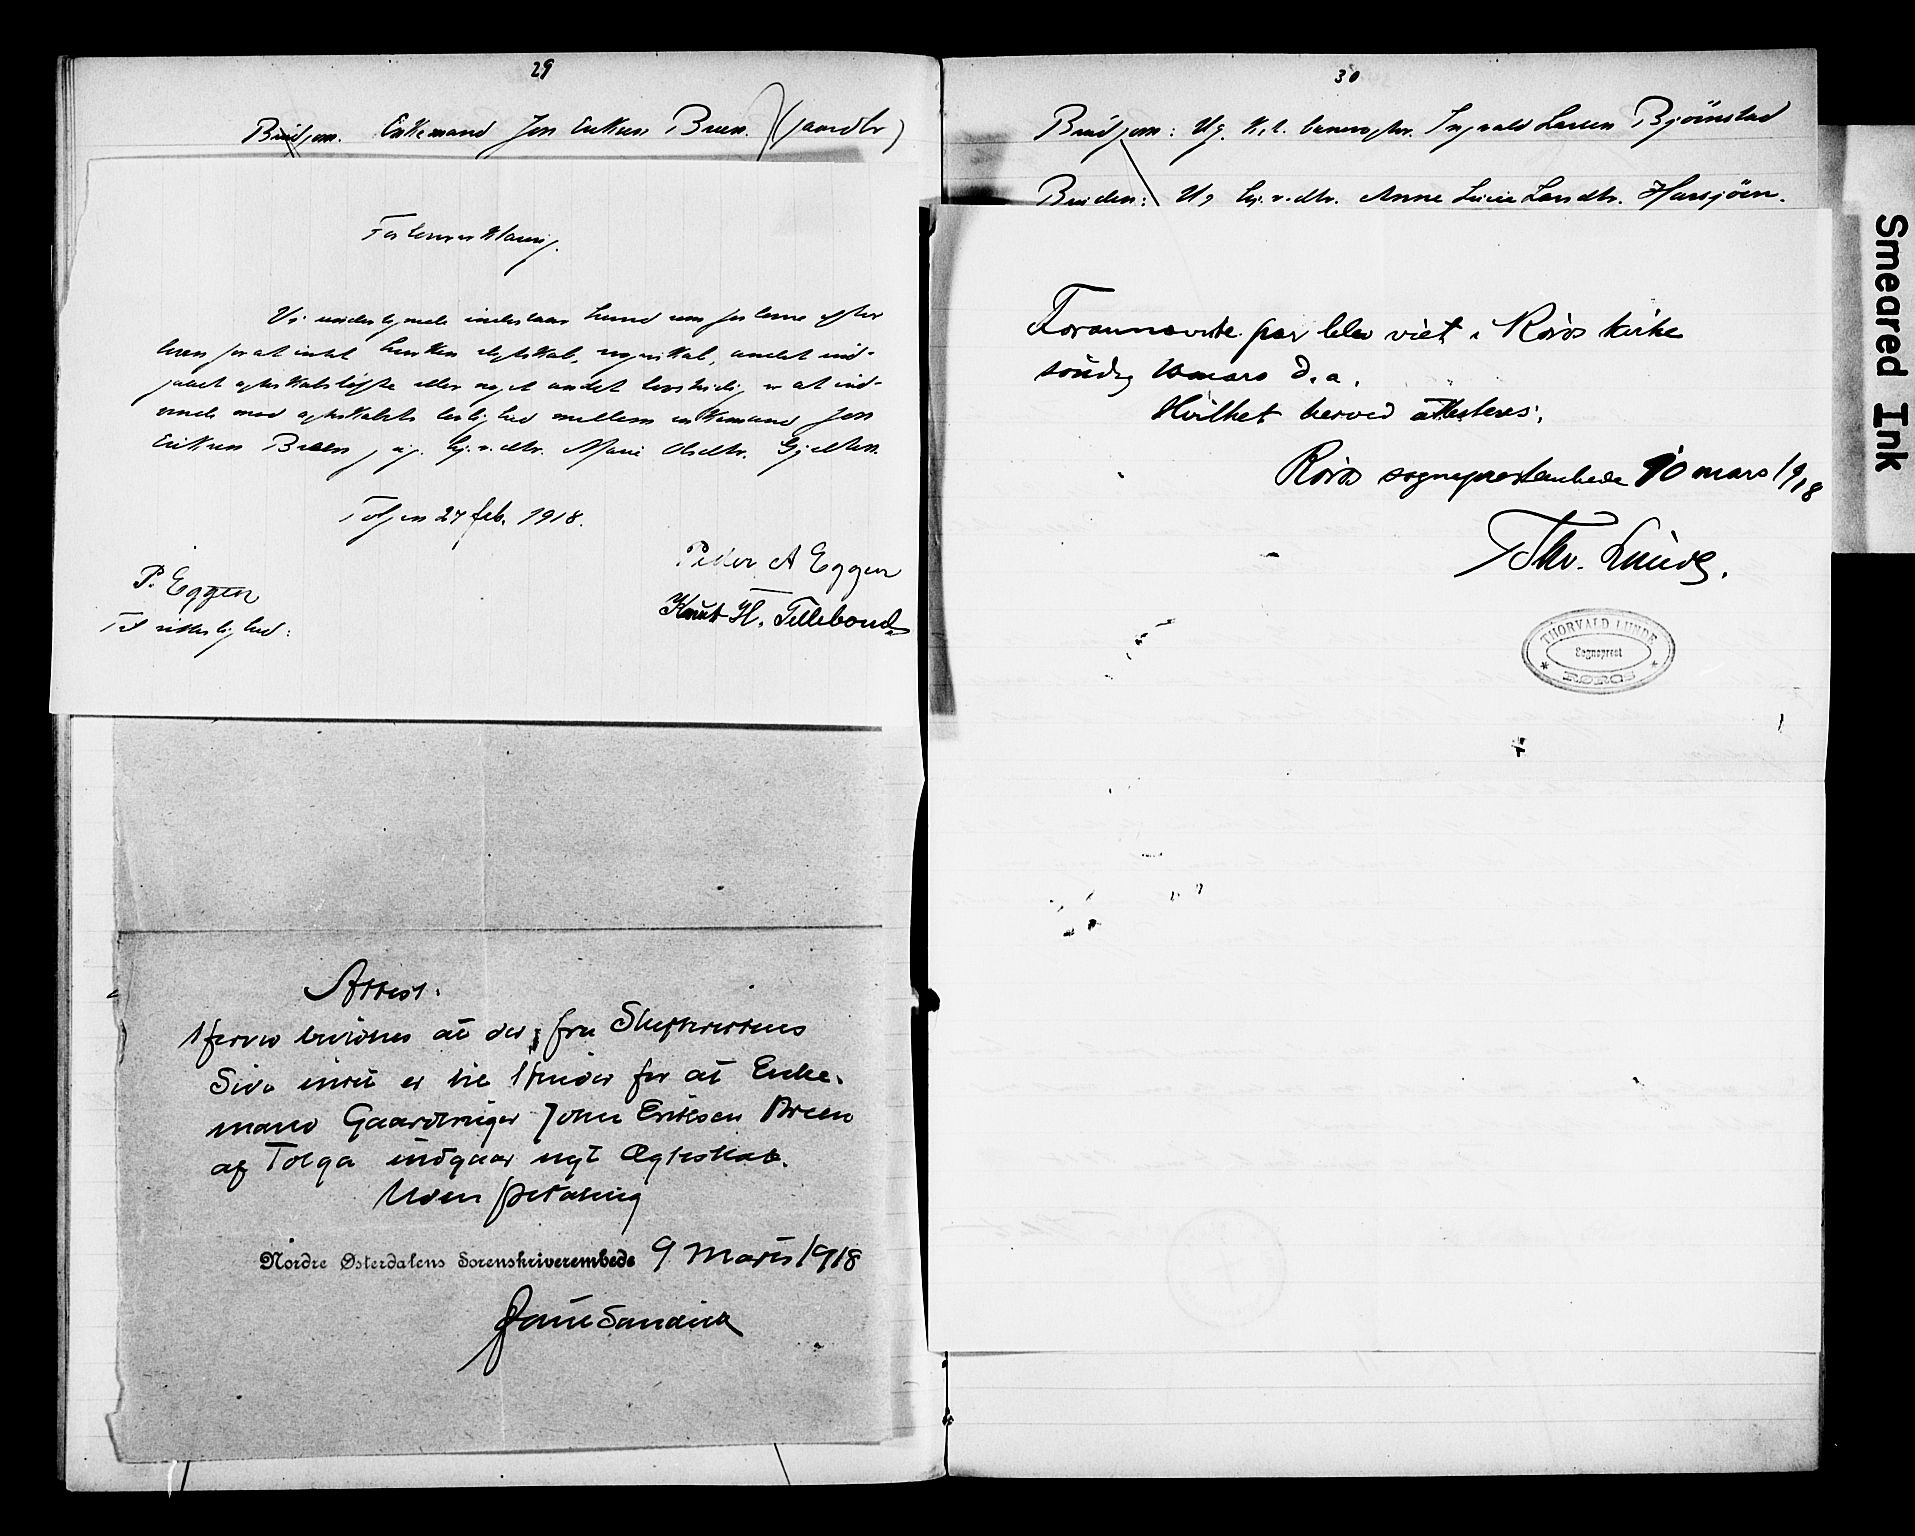 29
Brudgom. Enkemand Jon Eriksen Breen. (gaardbr)
Forloverklæring.
Vi undertegnede indestaar herved som forlovere efter
loven for at intet hverken slegtskab, svogerskab, andet ind-
gaaet egteskabsløfte eller noget andet lovstridig er at ind-
vende mod egteskabets lovlighed mellem enkemand Jon
Eriksen Breen og ug. gj.r.dtr. Marie Olsdtr. Gjelten.
Tolgen 27 feb. 1918.
Peder A Eggen
P. Eggen
Knut H. Tillebond
Til vitterlighed:
Attest.
Herved bevidnes at der fra Skifterettens
Side intet er til Hinder for at Enke-
mand Gaardbruger John Eriksen Breen
af Tolga indgaar nyt Ægteskab.
Uden betaling
Nordre Østerdalens Sorenskriverembede 9 Marts 1918
30
Brudgom: Ug. Ingvald Larsen Bjørnstad
Bruden: Ug gj.r.dtr. Anne Larsdtr. Harsjöen.
Forannævnte par blev viet i Röros kirke
söndag 10 mars d.a.
Hvilket herved attesteres.
Röros sogneprestembede 10 mars 1918
Thv. Lunde.
THORVALD LUNDE
Sogneprest
RØROS
Smeared Ink